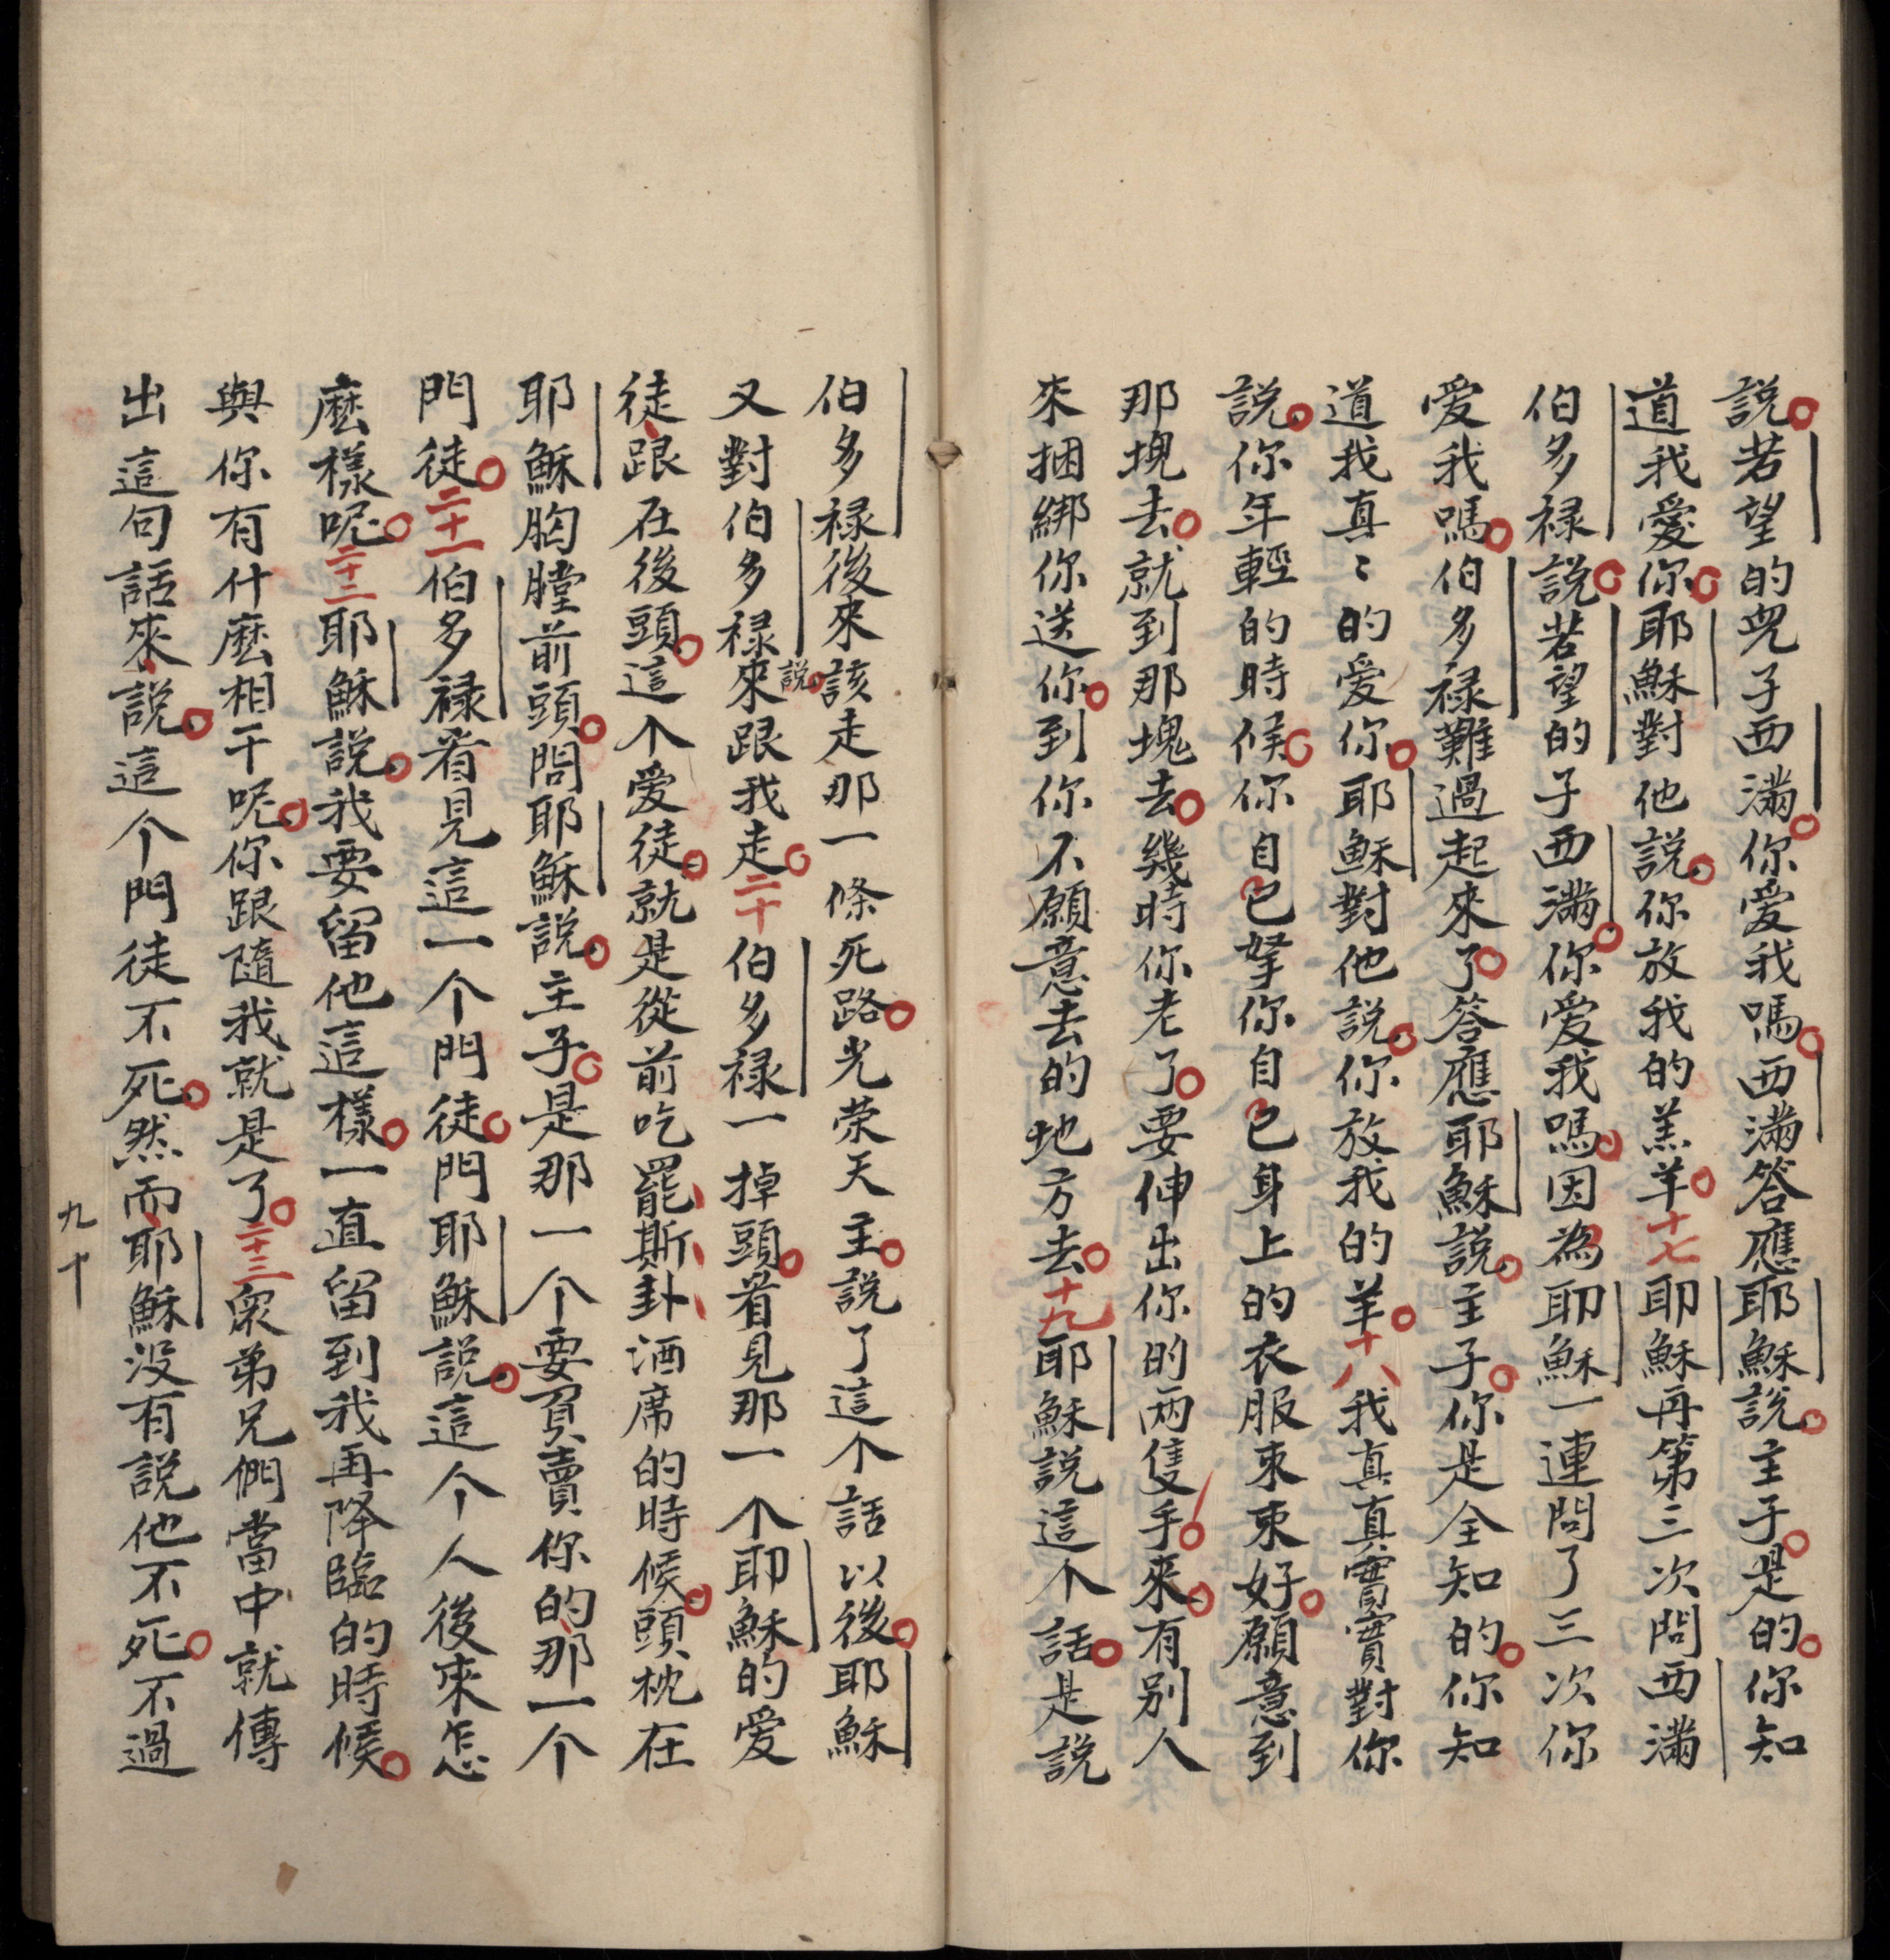 説。若望的兒子西滿。你爱我嗎。西滿答應耶穌説。主子。是的。你知
道我爱你。耶穌對他説。你放我的羔羊。十七耶穌再第三次問西滿
伯多禄説。若望的子西滿。你爱我嗎。因為耶穌一連問了三次你
爱我嗎。伯多禄難過起來了。答應耶穌説。主子。你是全知的。你知
道我真〻的爱你。耶穌對他説。你放我的羊。十八我真真實實對你
説。你年輕的時候。你自己拏你自己身上的衣服束束好。願意到
那塊去。就到那塊去。幾時你老了。要伸出你的两隻手。來。有别人
來捆綁你送你。到你不願意去的地方去。十九耶穌説這个話。是説
伯多禄後來該走那一條死路。光荣天主。説了這个話以後。耶穌
又對伯多禄説。來跟我走。二十伯多禄一掉頭。看見那一个耶穌的爱
徒、跟在後頭。這个爱徒。就是從前吃罷斯卦酒席的時候。頭枕在
耶穌胸膛前頭。問耶穌説。主子。是那一个要買賣你的、那一个
門徒。二十一伯多禄看見這一个門徒。門耶穌説。這个人後來怎
麽樣呢。二十二耶穌説。我要留他這樣。一直留到我再降臨的時候。
與你有什麽相干呢。你跟隨我就是了。二十三衆弟兄們當中就傳
出這句話來、説。這个門徒不死。然而、耶穌没有説他不死。不過
九十